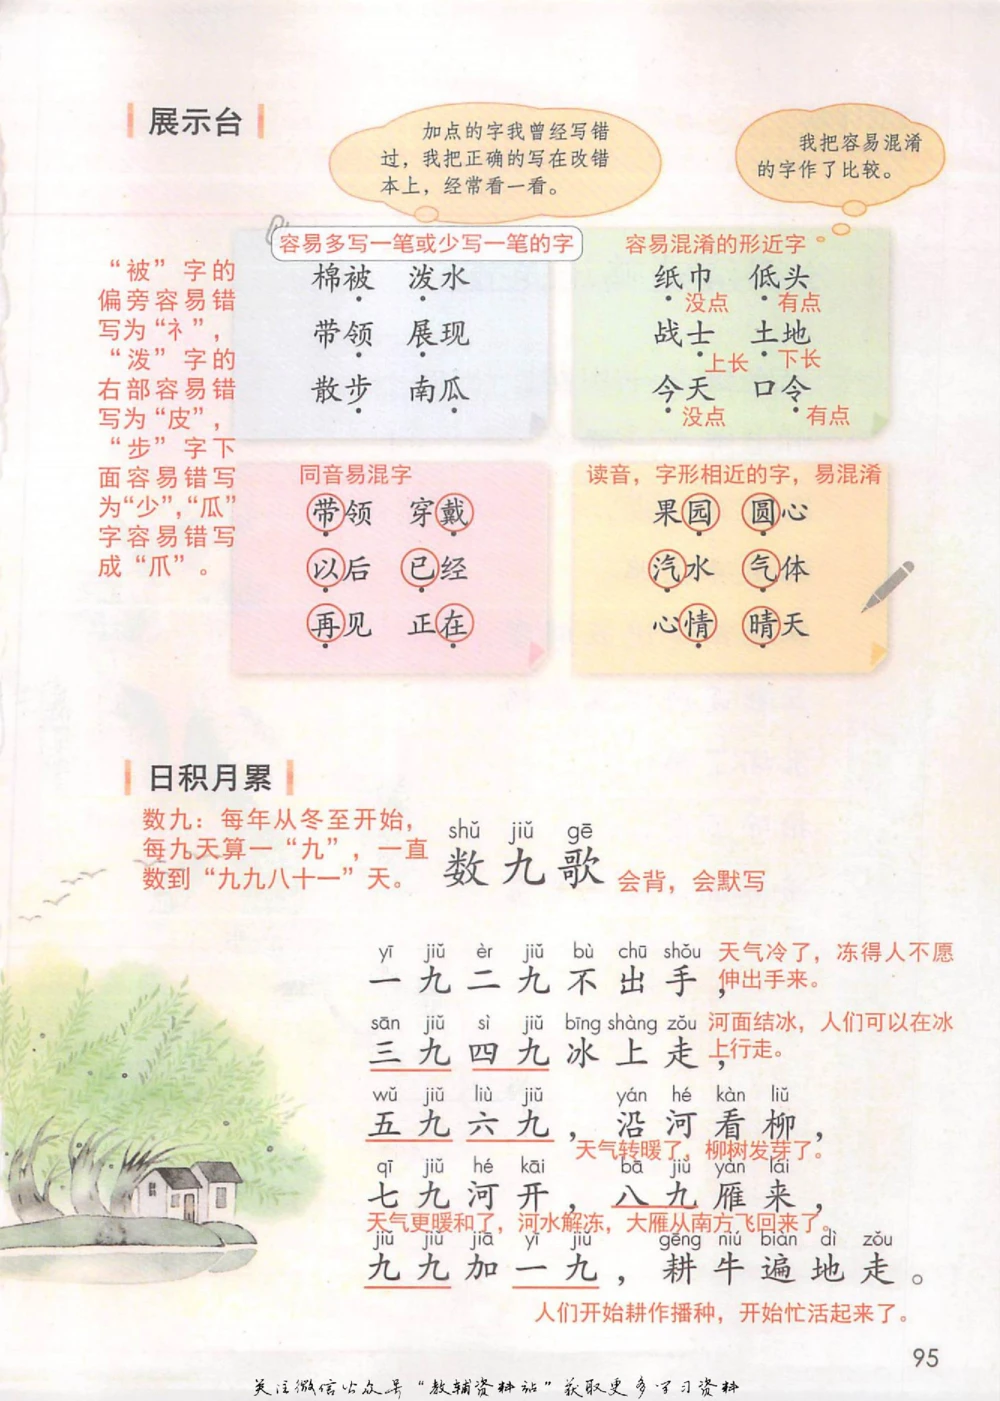 展示台
加点的字我曾经写错
过，我把正确的写在改错
本上，经常看一看。
我把容易混淆
的字作了比较。
“被”字的
偏旁容易错
写为“礻”，
“泼”字的
右部容易错
写为“皮”，
“步”字下
面容易错写
为“少”，“瓜”
字容易错写
成“爪”。
容易多写一笔或少写一笔的字
棉被 泼水
带领 展现
散步 南瓜
容易混淆的形近字
纸巾 低头
没点 有点
战士 土地
上长 下长
今天 口令
没点 有点
同音易混字
带领 穿戴
以后 已经
再见 正在
读音，字形相近的字，易混淆
果园 圆心
汽水 气体
心情 晴天
日积月累
数九：每年从冬至开始，
每九天算一“九”，一直
数到“九九八十一”天。
shǔ jiǔ gē
数九歌
会背，会默写
yī jiǔ èr jiǔ bù chū shǒu
一九二九不出手，
天气冷了，冻得人不愿
伸出手来。
sān jiǔ sì jiǔ bīng shàng zǒu
三九四九冰上走，
河面结冰，人们可以在冰
上行走。
wǔ jiǔ liù jiǔ yán hé kàn liǔ
五九六九，沿河看柳，
天气转暖了，柳树发芽了。
qī jiǔ hé kāi bā jiǔ yàn lái
七九河开，八九雁来，
天气更暖和了，河水解冻，大雁从南方飞回来了。
jiǔ jiǔ jiā yī jiǔ gēng niú biàn dì zǒu
九九加一九，耕牛遍地走。
人们开始耕作播种，开始忙活起来了。
95
关注微信公众号“教辅资料站”获取更多学习资料